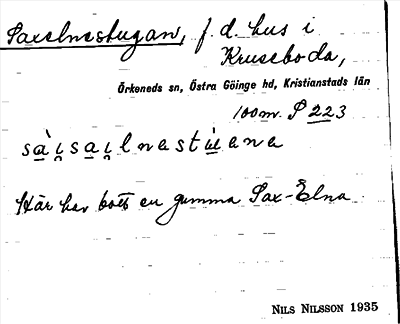 Saxelnestugan, f. d. hus i
Kruseboda,
Örkeneds sn, Östra Göinge hd, Kristianstads län
100 m. S 223
Här har bott en gumma Sax-Elna
NILS NILSSON 1935